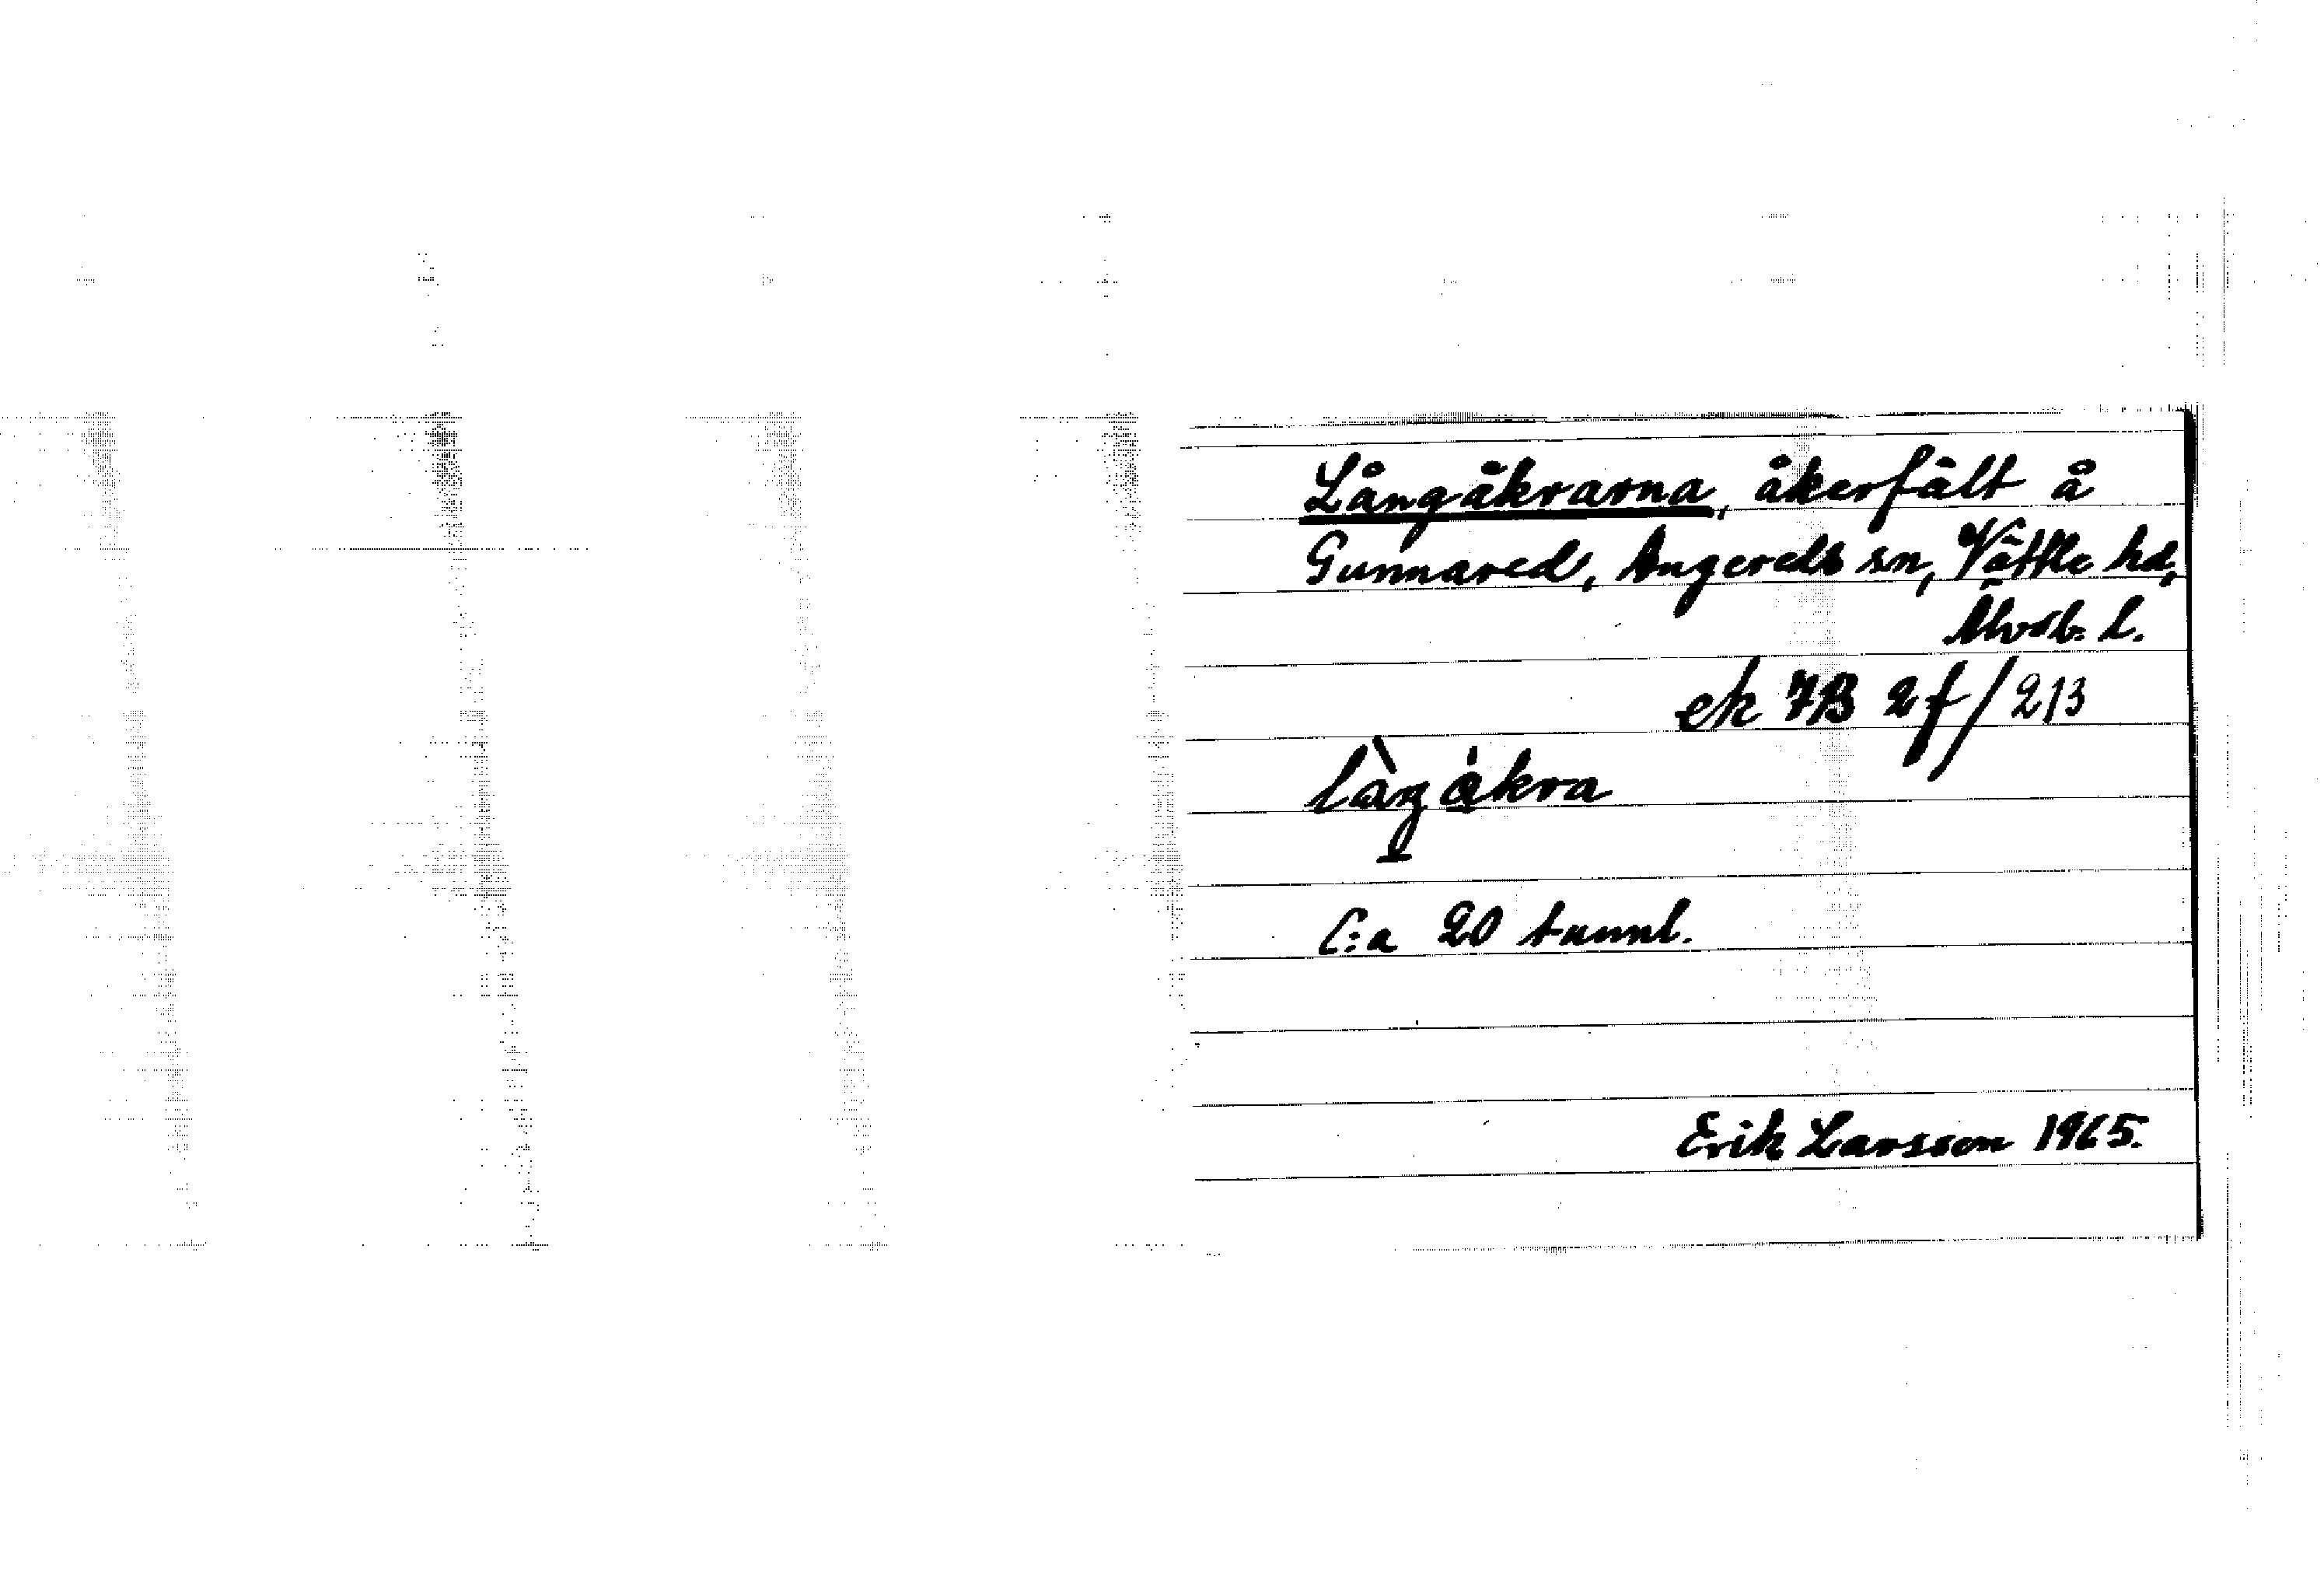 Långåkrarna, åkerfält å
Gunnared, Angereds sn, Vättle hd,
Älvsb. l.
ek 7B 2f/213
C:a 20 tunnl.
Erik Larsson 1965.